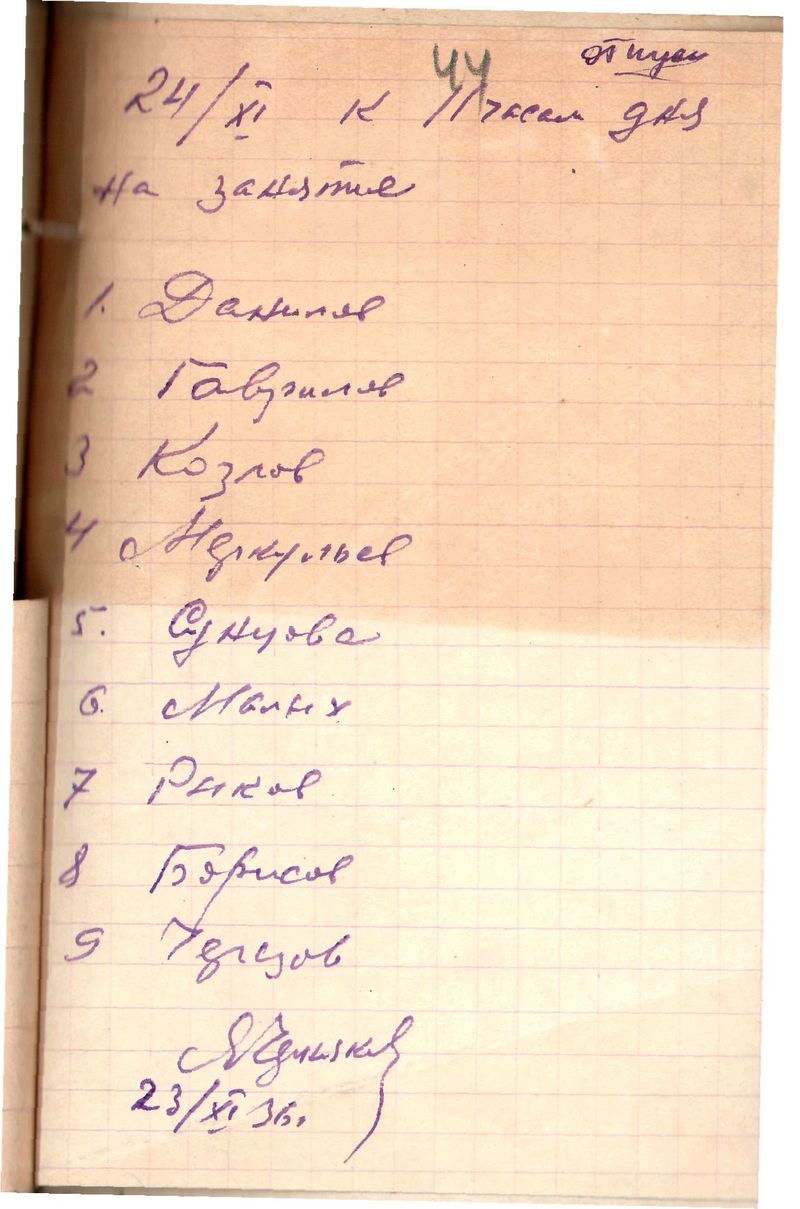 44
24/XI к 11 часам дня
на занятие
1. Данилов
2 Гаврилов
3 Козлов
4 Меркульев
5. Сунцова
6. Малых
7 Рыков
8 Борисов
9
23/XI 36.